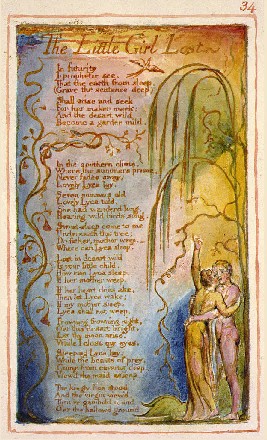 34
The Little Girl Lost
In futurity
I prophetic see,
That the earth from sleep,
(Grave the sentence deep)
Shall arise and seek
For her maker meek:
And the desart wild
Become a garden mild.
In the southern clime,
Where the summers prime,
Never fades away;
Lovely Lyca lay.
Seven summers old
Lovely Lyca told,
She had wanderd long,
Hearing wild birds song.
Sweet sleep come to me
Underneath this tree;
Do father, mother weep,
Where can Lyca sleep.
Lost in desart wild
Is your little child.
How can Lyca sleep,
If her mother weep.
If her heart does ake,
Then let Lyca wake;
If my mother sleep,
Lyca shall not weep.
Frowning frowning night,
O'er this desart bright,
Let thy moon arise,
While I close my eyes.
Sleeping Lyca lay;
While the beasts of prey,
Come from caverns deep,
View'd the maid asleep
The kingly lion stood
And the virgin view'd,
Then he gambold round
O'er the hallowd ground: